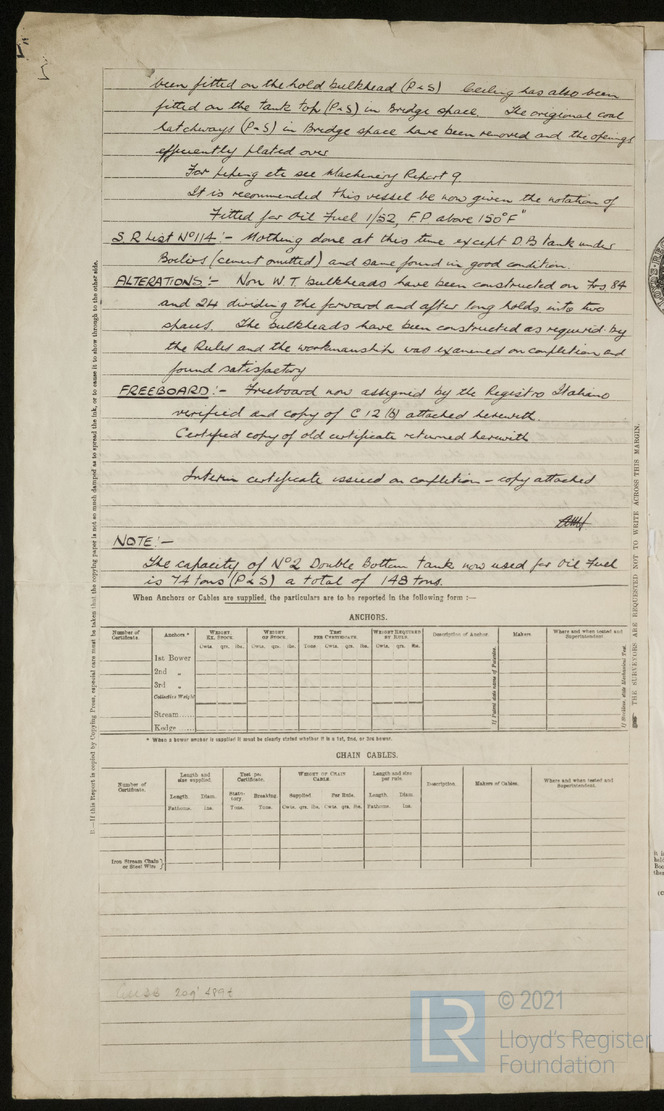 been fitted on the hold bulkhead (P&S) Ceiling has also been
fitted on the tank top (P&S) in Bridge space. The origional coal
hatchways (P&S) in Bridge space have been removed and the openings
efficiently plated over
For piping etc see Machinery Report 9
It is recommended this vessel be now given the notation of
Fitted for Oil Fuel 1/52, F.P above 150°F"
S.R List No 114:- Nothing done at this time except D.B tank under
Boilers (cement omitted) and same found in good condition.
ALTERATIONS:- Non W.T. bulkheads have been constructed on Frs. 84
and 24 dividing the forward and after long holds into two
spaces. The bulkheads have been constructed as required by
the Rules and the workmanship was examined on completion and
found satisfactory
FREEBOARD:- Freeboard now assigned by the Registro Italiano
verified and copy of C 12 attached herewith.
Certified copy of old certificate returned herewith
Interim certificate issued on completion - copy attached
NOTE:-
The capacity of No 2 Double Bottom tank now used for Oil Fuel
is 74 tons (P&S) a total of 148 tons.
When Anchors or Cables are supplied, the particulars are to be reported in the following form :—
ANCHORS.
Number of Certificate. Anchors.* WEIGHT EX. STOCK. WEIGHT OF STOCK. TEST PER CERTIFICATE. WEIGHT REQUIRED BY RULE. Description of Anchor. Makers Where and when tested and Superintendent.
Cwts. qrs. lbs. Cwts. qrs. lbs. Tons. Cwts. qrs. lbs. Cwts. qrs. lbs.
1st Bower
2nd „
3rd „
Collective Weight
Stream
Kedge
If Patent state name of Patentee.
If Stockless, state Mechanical Test.
* When a bower anchor is supplied it must be clearly stated whether it is a 1st, 2nd, or 3rd bower.
CHAIN CABLES.
Number of Certificate. Length and size supplied. Test per Certificate. WEIGHT OF CHAIN CABLE. Length and size per rule. Description. Makers of Cables. Where and when tested and Superintendent.
Length. Diam. Statutory. Breaking. Supplied Per Rule. Length. Diam.
Fathoms. Ins. Tons. Tons. Cwts. qrs. lbs. Cwts. qrs. lbs. Fathoms. Ins.
Iron Stream Chain or Steel Wire }
If this Report is copied by Copying Press, especial care must be taken that the copying paper is not so much damped as to spread the ink, or to cause it to show through to the other side.
THE SURVEYORS ARE REQUESTED NOT TO WRITE ACROSS THIS MARGIN.
LR
© 2021
Lloyd's Register
Foundation